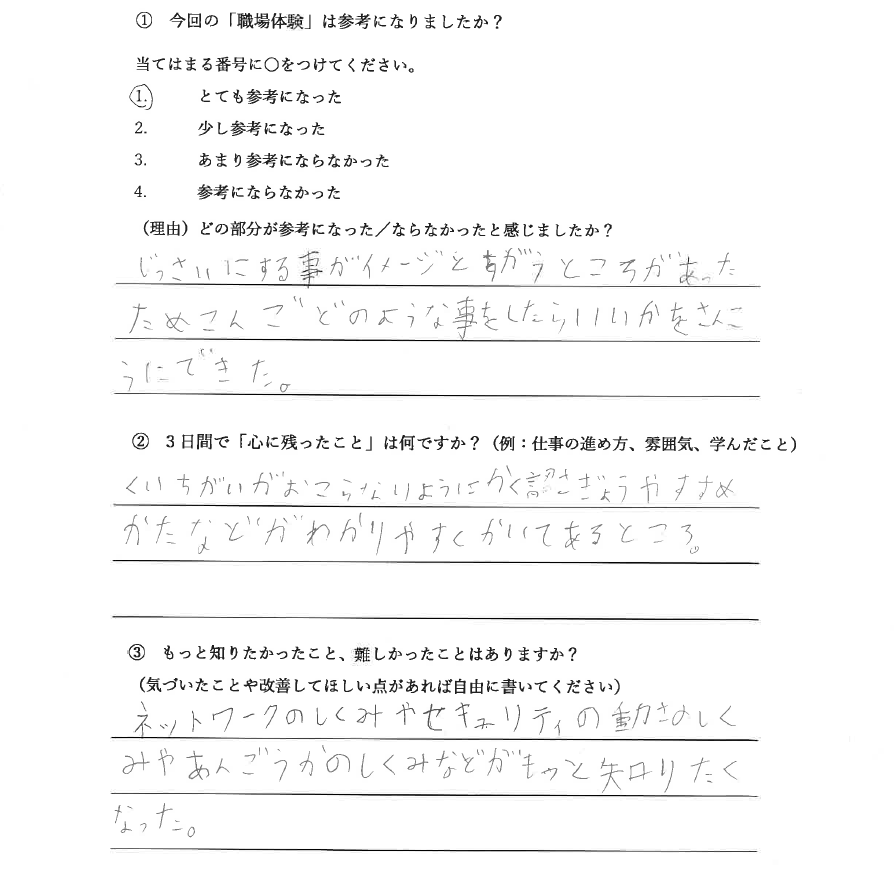 ① 今回の「職場体験」は参考になりましたか？
当てはまる番号に○をつけてください。
1. とても参考になった
2. 少し参考になった
3. あまり参考にならなかった
4. 参考にならなかった
（理由）どの部分が参考になった／ならなかったと感じましたか？
じっさいにする事がイメージとちがうところがあった
ためこんごどのような事をしたらいいかをさんこ
うにできた。
② ３日間で「心に残ったこと」は何ですか？（例：仕事の進め方、雰囲気、学んだこと）
くいちがいがおこらないようにかく認さぎょうやすすめ
かたなどがわかりやすくかいてあるところ。
③ もっと知りたかったこと、難しかったことはありますか？
（気づいたことや改善してほしい点があれば自由に書いてください）
ネットワークのしくみやセキュリティの動きのしく
みやあんごうかのしくみなどがもっと知りたく
なった。